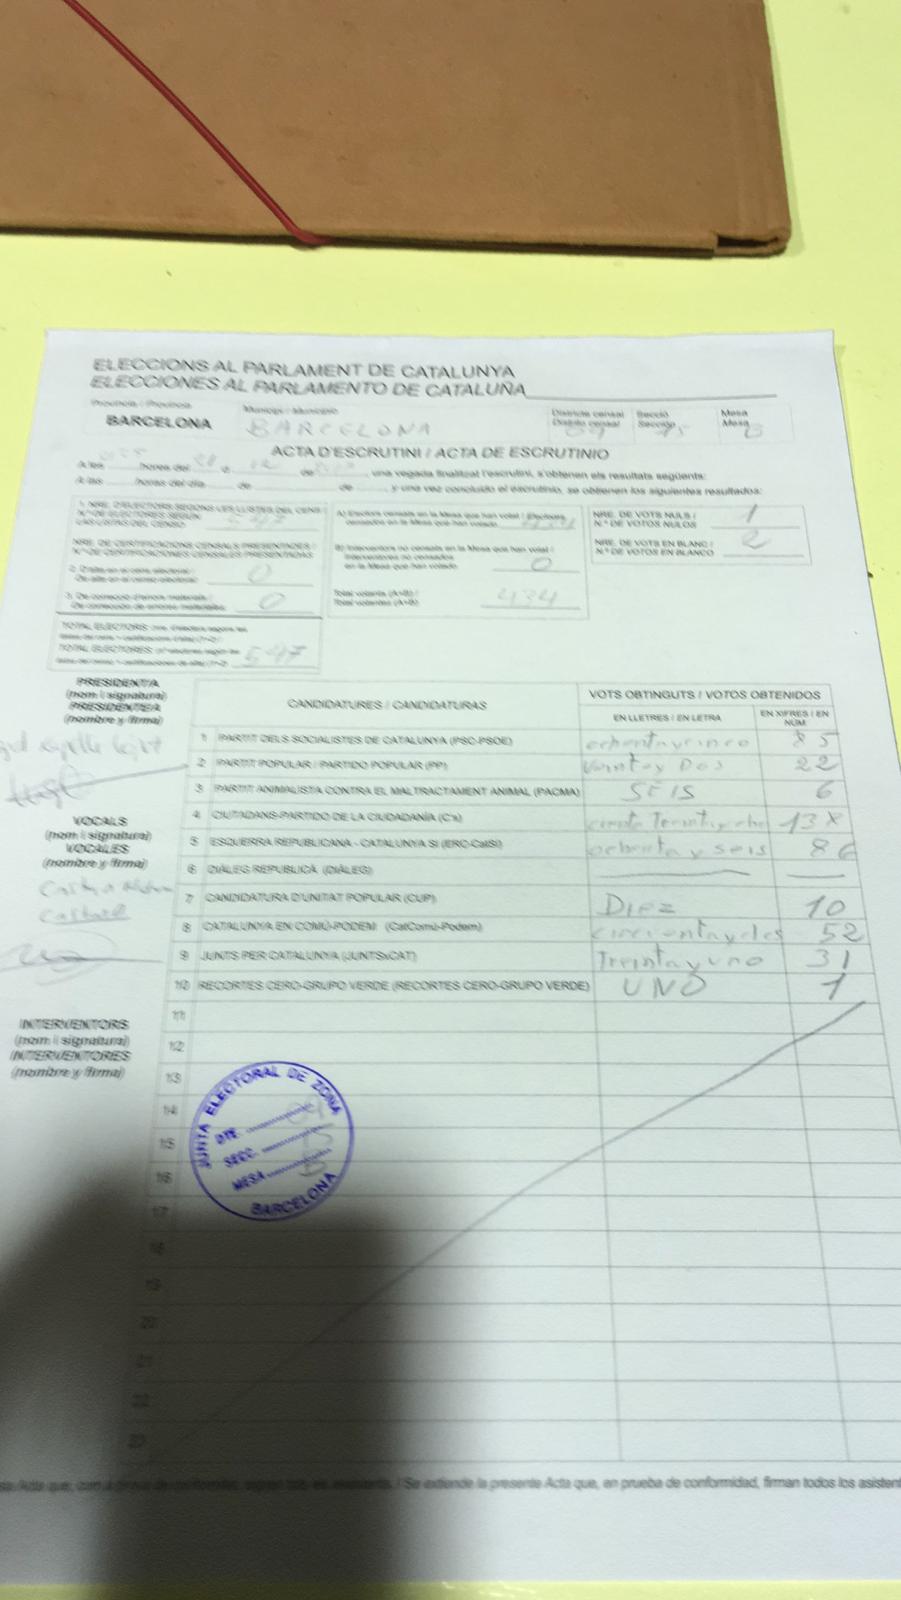 ELECCIONS AL PARLAMENT DE CATALUNYA
ELECCIONES AL PARLAMENTO DE CATALUÑA
Província / Provincia
BARCELONA
Municipi / Municipio
BARCELONA
Districte censal
Distrito censal
Secció
Sección
Mesa
Mesa
B
ACTA D'ESCRUTINI / ACTA DE ESCRUTINIO
A les hores del de, una vegada finalitzat l'escrutini, s'obtenen els resultats següents:
A las horas del día de de y una vez concluido el escrutinio, se obtienen los siguientes resultados:
1. NRE. D'ELECTORS SEGONS LES LLISTES DEL CENS /
N.º DE ELECTORES SEGÚN
LAS LISTAS DEL CENSO
547
NRE. DE CERTIFICACIONS CENSALS PRESENTADES /
N.º DE CERTIFICACIONES CENSALES PRESENTADAS
0
0
TOTAL ELECTORS
TOTAL ELECTORES
547
A) Electors censats en la Mesa que han votat / Electores
censados en la Mesa que han votado 434
B) Interventors no censats en la Mesa que han votat /
Interventores no censados
en la Mesa que han votado 0
Total votants (A+B) /
Total votantes (A+B) 434
NRE. DE VOTS NULS /
N.º DE VOTOS NULOS 1
NRE. DE VOTS EN BLANC /
N.º DE VOTOS EN BLANCO 2
PRESIDENT/A
(nom i signatura)
PRESIDENTE/A
(nombre y firma)
VOCALS
(nom i signatura)
VOCALES
(nombre y firma)
INTERVENTORS
(nom i signatura)
INTERVENTORES
(nombre y firma)
CANDIDATURES / CANDIDATURAS
VOTS OBTINGUTS / VOTOS OBTENIDOS
EN LLETRES / EN LETRA
EN XIFRES / EN NÚM.
1 PARTIT DELS SOCIALISTES DE CATALUNYA (PSC-PSOE) ochentaycinco 85
2 PARTIT POPULAR / PARTIDO POPULAR (PP) Veintay Dos 22
3 PARTIT ANIMALISTA CONTRA EL MALTRACTAMENT ANIMAL (PACMA) SEIS 6
4 CIUTADANS-PARTIDO DE LA CIUDADANÍA (C's) 138
5 ESQUERRA REPUBLICANA - CATALUNYA SÍ (ERC-CatSí) ochenta y seis 86
6 DIÀLEG REPUBLICÀ (DIÀLEG)
7 CANDIDATURA D'UNITAT POPULAR (CUP) Diez 10
8 CATALUNYA EN COMÚ-PODEM (CatComú-Podem) cincuentaydos 52
9 JUNTS PER CATALUNYA (JUNTSxCAT) Treinta y uno 31
10 RECORTES CERO-GRUPO VERDE (RECORTES CERO-GRUPO VERDE) UNO 1
11
12
13
14
15
16
17
18
19
20
21
22
23
JUNTA ELECTORAL DE ZONA
DTE. 09
SECC. 15
MESA B
BARCELONA
Se extiende la presente Acta que, en prueba de conformidad, firman todos los